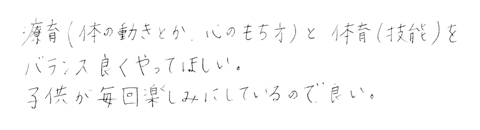 療育(体の動きとか、心のもち方)と 体育(技能)を
バランス良くやってほしい。
子供が毎回楽しみにしているので、良い。